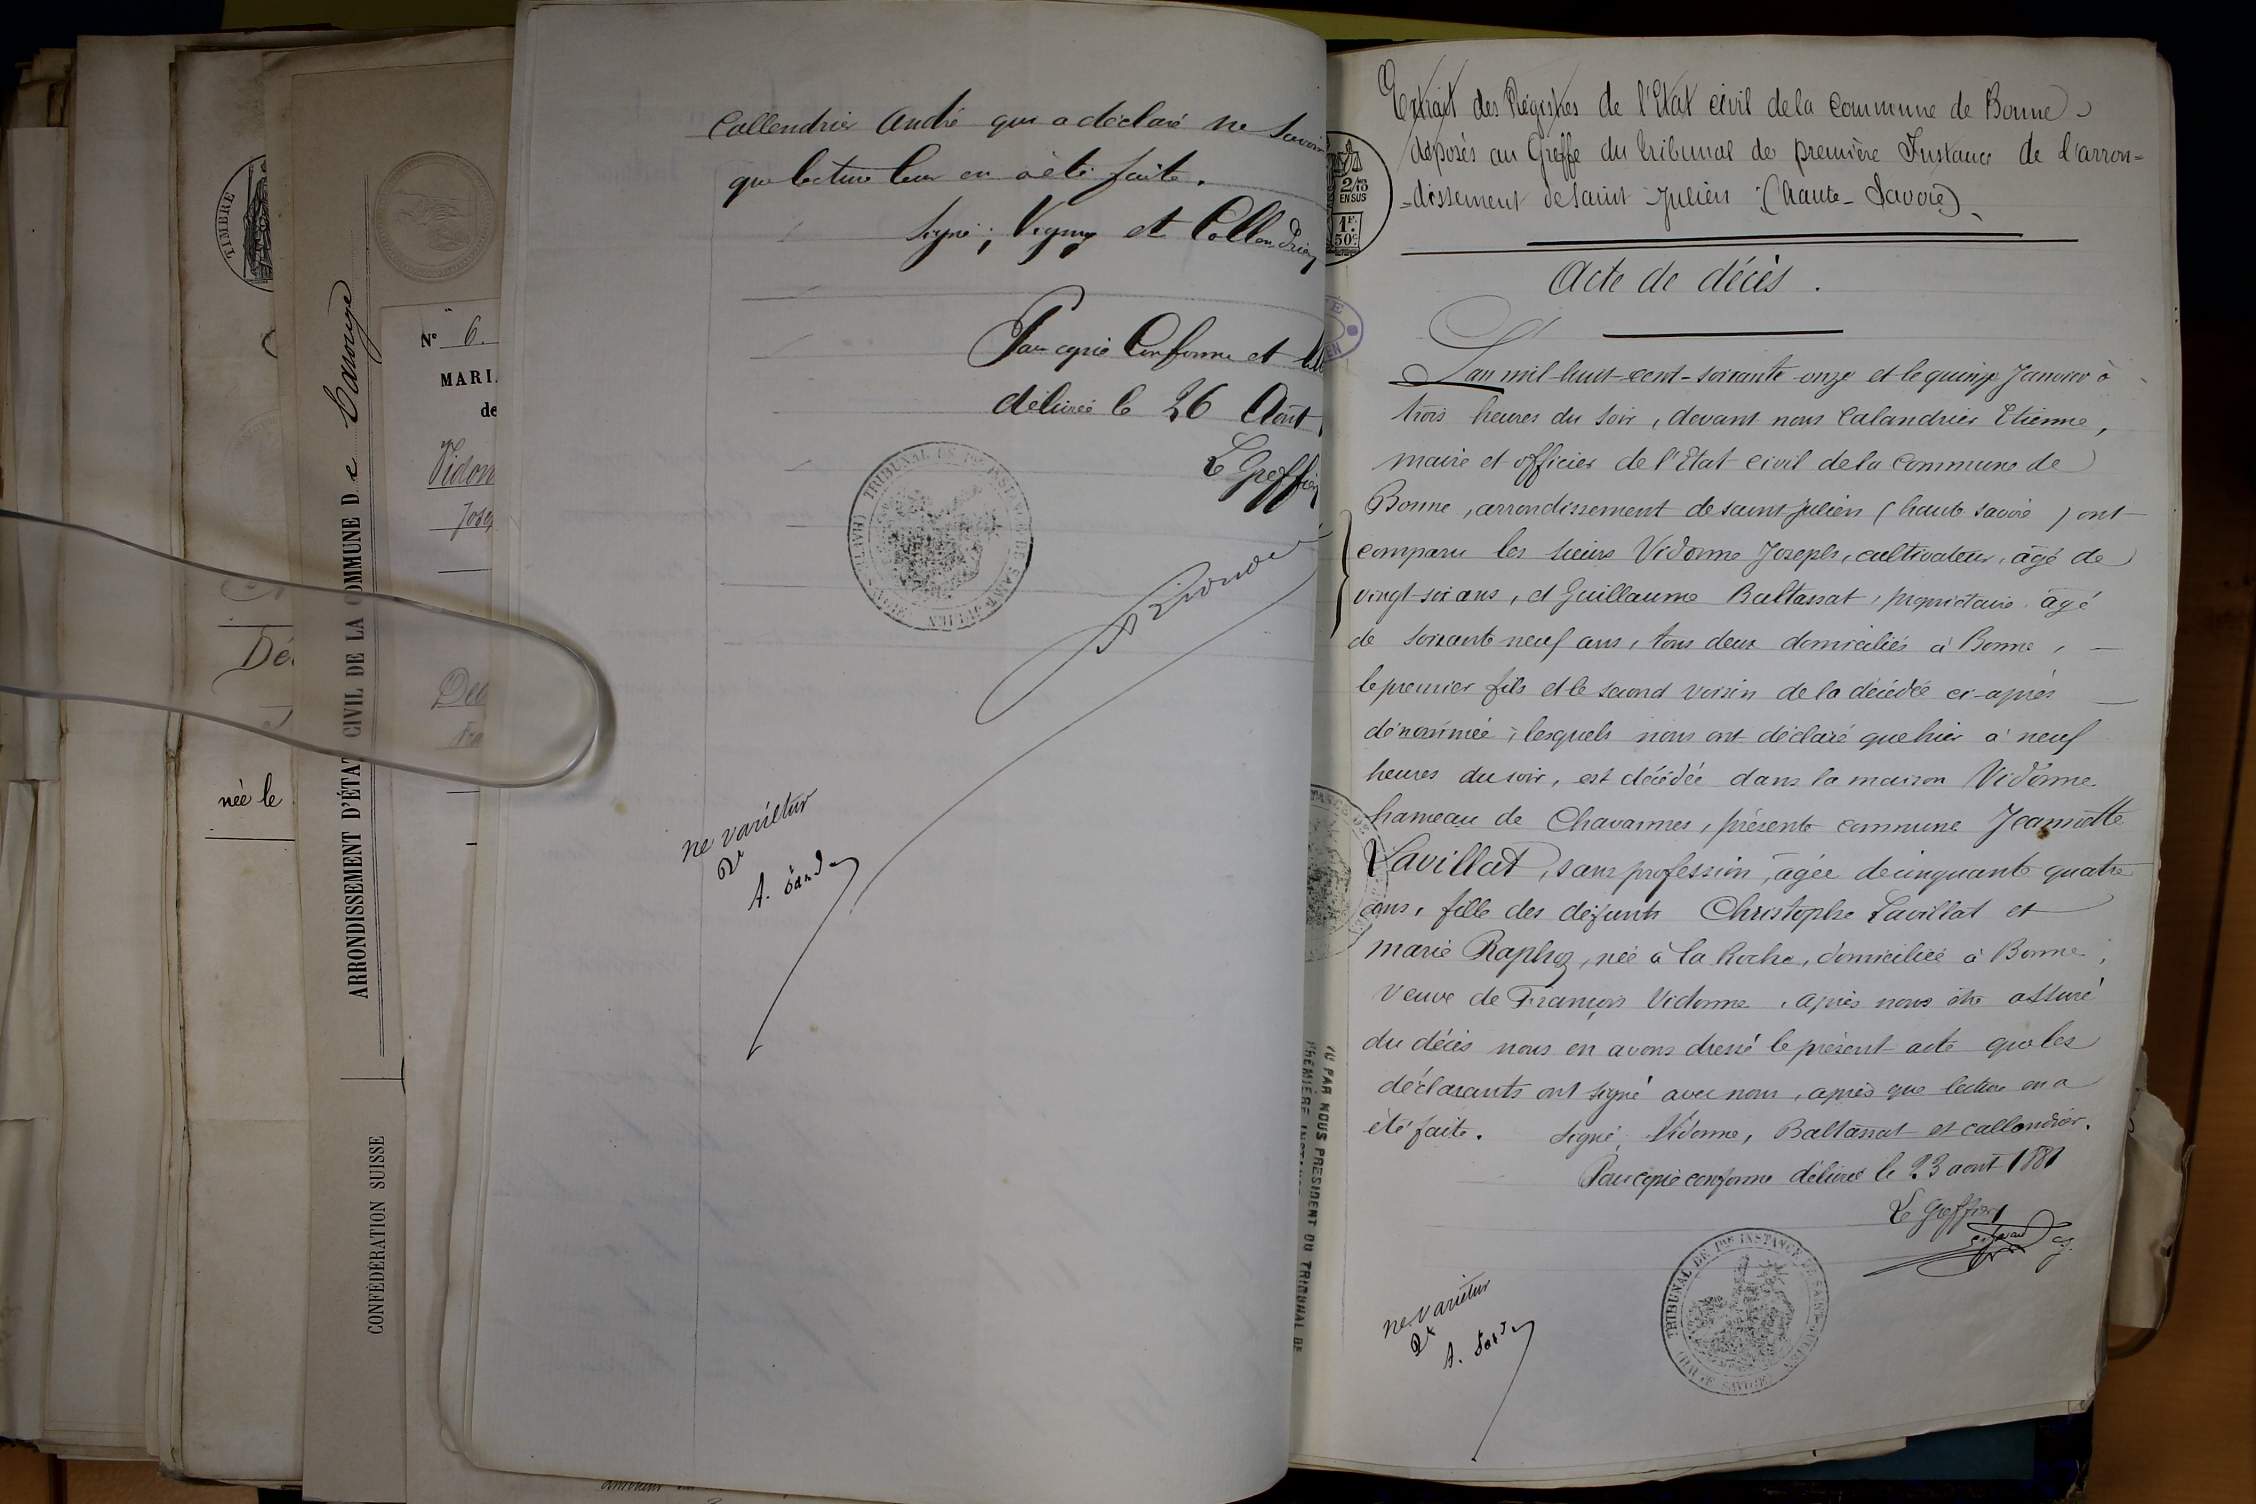 TIMBRE
née le
ARRONDISSEMENT D'ÉTAT CIVIL DE LA COMMUNE De Carouge
CONFÉDÉRATION SUISSE
N° 6.
MARI
de
Vidon
Jose
Callendrier André qui a déclaré ne savoir
que lecture leur en a été faite.
Signé; Vigny et Collendrier
Pour copie Conforme et
délivrée le 26 Août
Le Greffier
TRIBUNAL DE 1re INSTANCE DE SAINT-JULIEN
ne varietur
A.
2/10
EN SUS
1F.
50c
VU PAR NOUS PRESIDENT DU TRIBUNAL DE
PREMIÈRE INSTANCE
Extrait des Registres de l'Etat civil de la commune de Bonne
déposés au Greffe du tribunal de première Instance de l'arron=
=dissement de saint Julien (haute-Savoie).
Acte de décès.
L'an mil-huit-cent-soixante-onze et le quinze Janvier à
trois heures du soir, devant nous Calandrier Etienne,
maire et officier de l'Etat civil de la commune de
Bonne, arrondissement de saint julien (haute savoie) ont
comparu les sieurs Vidonne Joseph, cultivateur, âgé de
vingt-six ans, et Guillaume Baltassat, propriétaire âgé
de soixante neuf ans, tous deux domiciliés à Bonne,
le premier fils et le second voisin de la décédée ci-après
dénommée; lesquels nous ont déclaré que hier à neuf
heures du soir, est décédée dans la maison Vidonne
hameau de Chavannes, présente commune Jeannette
Lavillat, sans profession, âgée de cinquante quatre
ans, fille des défunts Christophe Lavillat et
marie Raphoz, née à la Roche, domiciliée à Bonne;
veuve de François Vidonne, après nous être assuré
du décès nous en avons dressé le présent acte que les
déclarants ont signé avec nous, après que lecture en a
été faite. Signé, Vidonne, Baltassat et callendrier.
Pour copie conforme délivrée le 23 août 1881
Le Greffier
TRIBUNAL DE 1re INSTANCE DE SAINT-JULIEN
(HAUTE SAVOIE)
ne varietur
A.